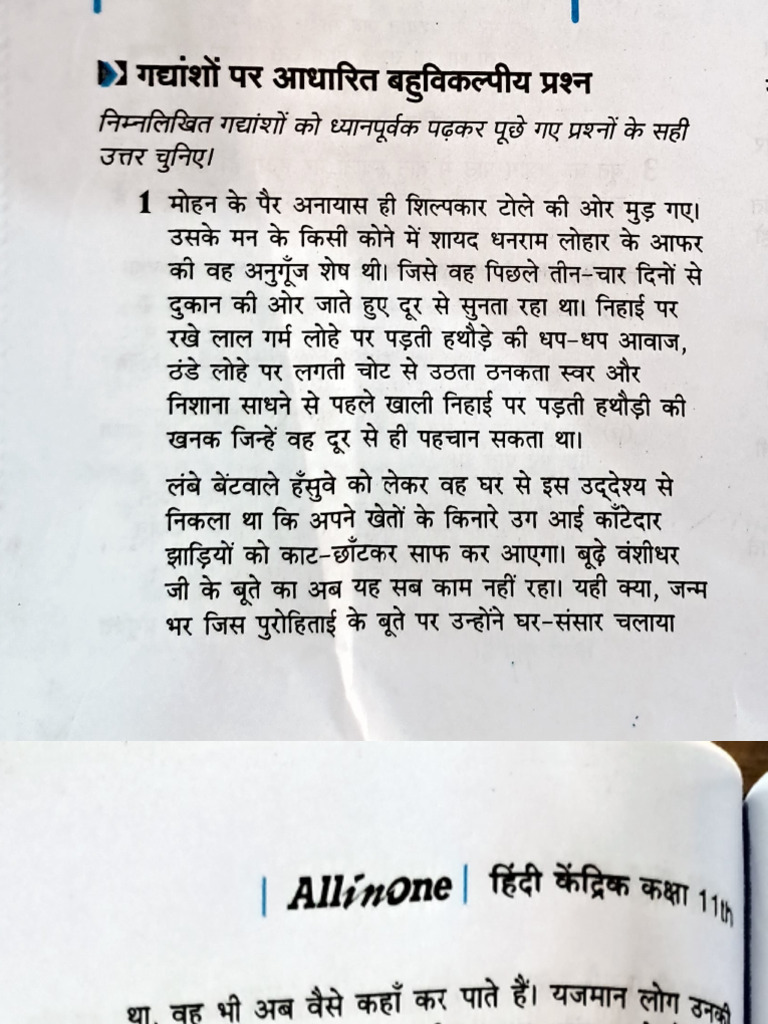 गद्यांशों पर आधारित बहुविकल्पीय प्रश्न
निम्नलिखित गद्यांशों को ध्यानपूर्वक पढ़कर पूछे गए प्रश्नों के सही
उत्तर चुनिए।
1 मोहन के पैर अनायास ही शिल्पकार टोले की ओर मुड़ गए।
उसके मन के किसी कोने में शायद धनराम लोहार के आफर
की वह अनुगूँज शेष थी। जिसे वह पिछले तीन-चार दिनों से
दुकान की ओर जाते हुए दूर से सुनता रहा था। निहाई पर
रखे लाल गर्म लोहे पर पड़ती हथौड़े की धप-धप आवाज,
ठंडे लोहे पर लगती चोट से उठता ठनकता स्वर और
निशाना साधने से पहले खाली निहाई पर पड़ती हथौड़ी की
खनक जिन्हें वह दूर से ही पहचान सकता था।
लंबे बेंटवाले हँसुवे को लेकर वह घर से इस उद्देश्य से
निकला था कि अपने खेतों के किनारे उग आई काँटेदार
झाड़ियों को काट-छाँटकर साफ कर आएगा। बूढ़े वंशीधर
जी के बूते का अब यह सब काम नहीं रहा। यही क्या, जन्म
भर जिस पुरोहिताई के बूते पर उन्होंने घर-संसार चलाया
Allinone हिंदी केंद्रिक कक्षा 11th
था, वह भी अब वैसे कहाँ कर पाते हैं। यजमान लोग उनकी